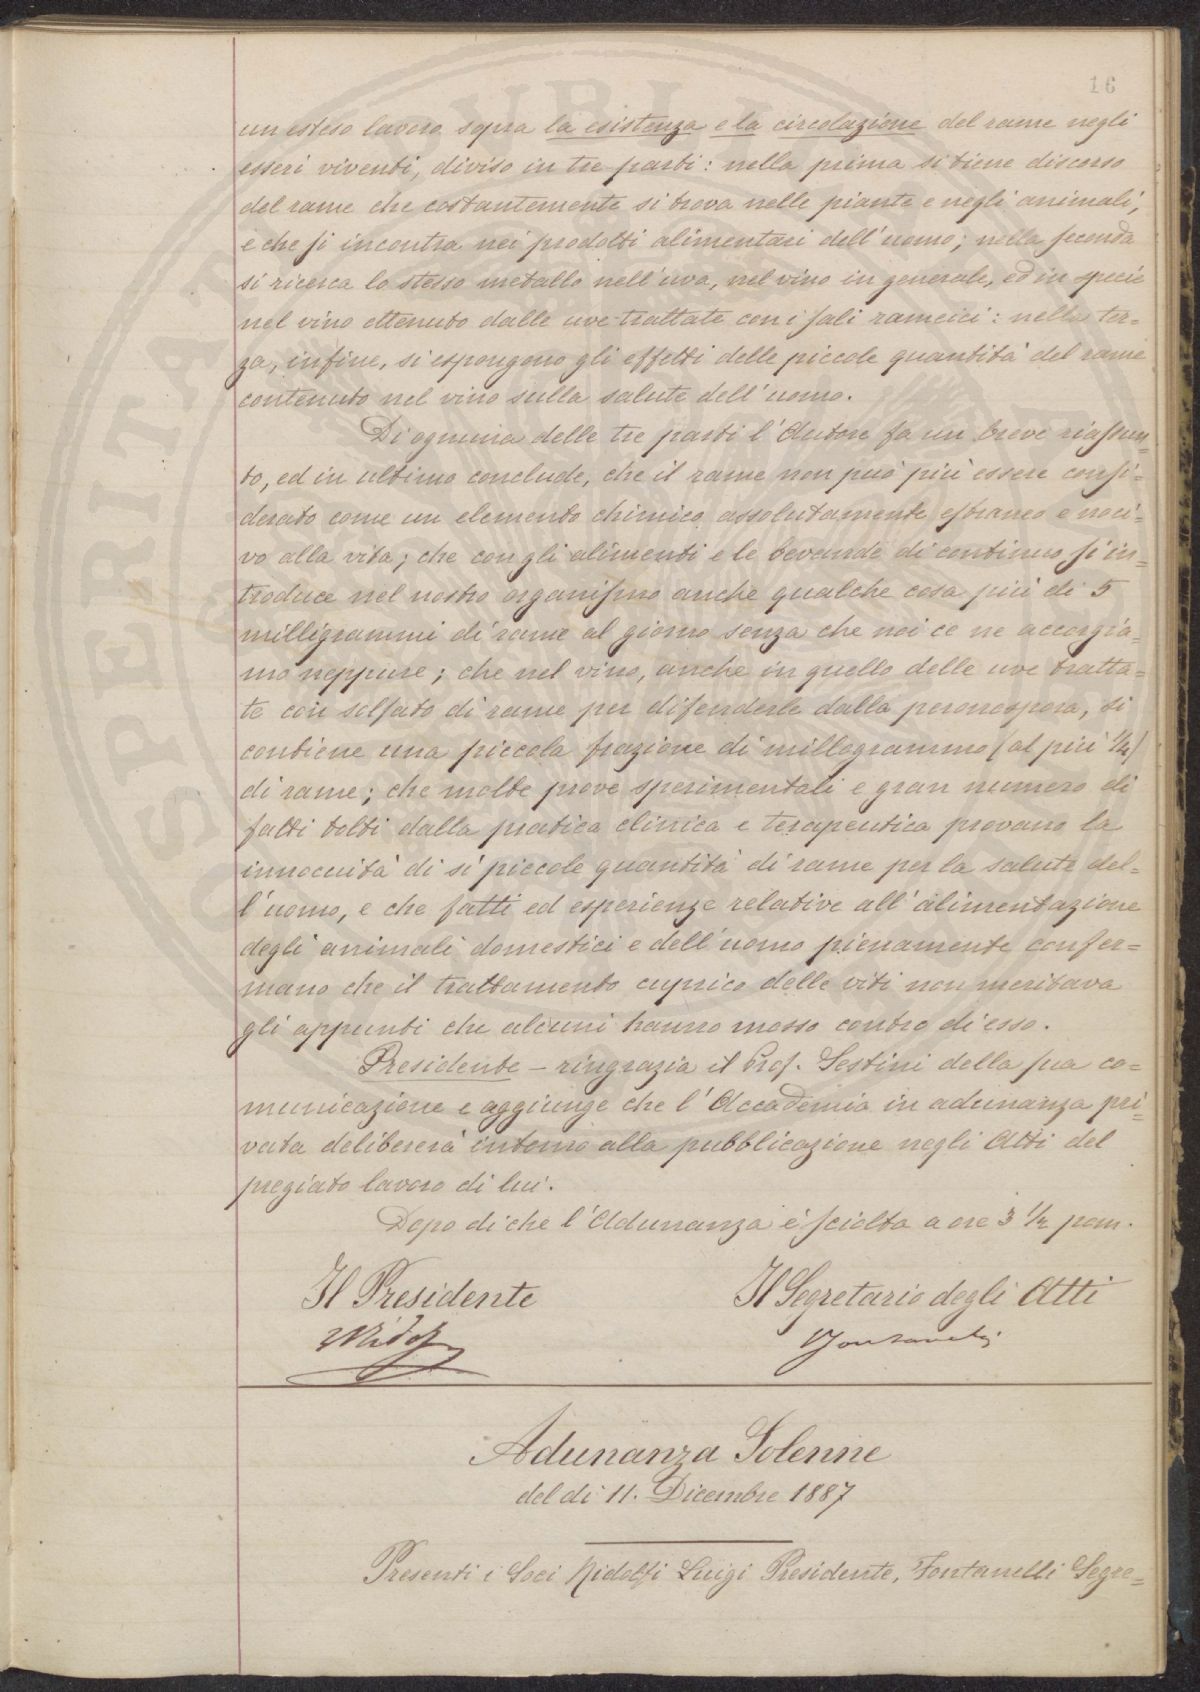 16
un esteso lavoro sopra la esistenza e la circolazione del rame negli
esseri viventi, diviso in tre parti: nella prima si tiene discorso
del rame che costantemente si trova nelle piante e negli animali,
e che si incontra nei prodotti alimentari dell'uomo; nella seconda
si ricerca lo stesso metallo nell'uva, nel vino in generale, ed in specie
nel vino ottenuto dalle uve trattate con i sali rameici: nella ter=
za, infine, si espongono gli effetti delle piccole quantità del rame
contenuto nel vino sulla salute dell'uomo.
Di ognuna delle tre parti l'Autore fa un breve riassun=
to, ed in ultimo conclude, che il rame non può più essere consi=
derato come un elemento chimico assolutamente estraneo e noci=
vo alla vita; che con gli alimenti e le bevande di continuo si in=
troduce nel nostro organismo anche qualche cosa più di 5
milligrammi di rame al giorno senza che noi ce ne accorgia=
mo neppure; che nel vino, anche in quello delle uve tratta=
te con solfato di rame per difenderle dalla peronospora, si
contiene una piccola frazione di millogrammo (al più 1/4)
di rame; che molte prove sperimentali e gran numero di
fatti tolti dalla pratica clinica e terapeutica provano la
innocuità di sì piccole quantità di rame per la salute del=
l'uomo, e che fatti ed esperienze relative all'alimentazione
degli animali domestici e dell'uomo pienamente confer=
mano che il trattamento cuprico delle viti non meritava
gli appunti che alcuni hanno mosso contro di esso.
Presidente – ringrazia il Prof. Sestini della sua co=
municazione e aggiunge che l'Accademia in adunanza pri=
vata delibererà intorno alla pubblicazione negli Atti del
pregiato lavoro di lui.
Dopo di che l'Adunanza è sciolta a ore 3 1/2 pom.
Il Presidente
Il Segretario degli Atti
LRidolfi
Fontanelli
Adunanza Solenne
del dì 11. Dicembre 1887
Presenti i Soci Ridolfi Luigi Presidente, Fontanelli Segre=